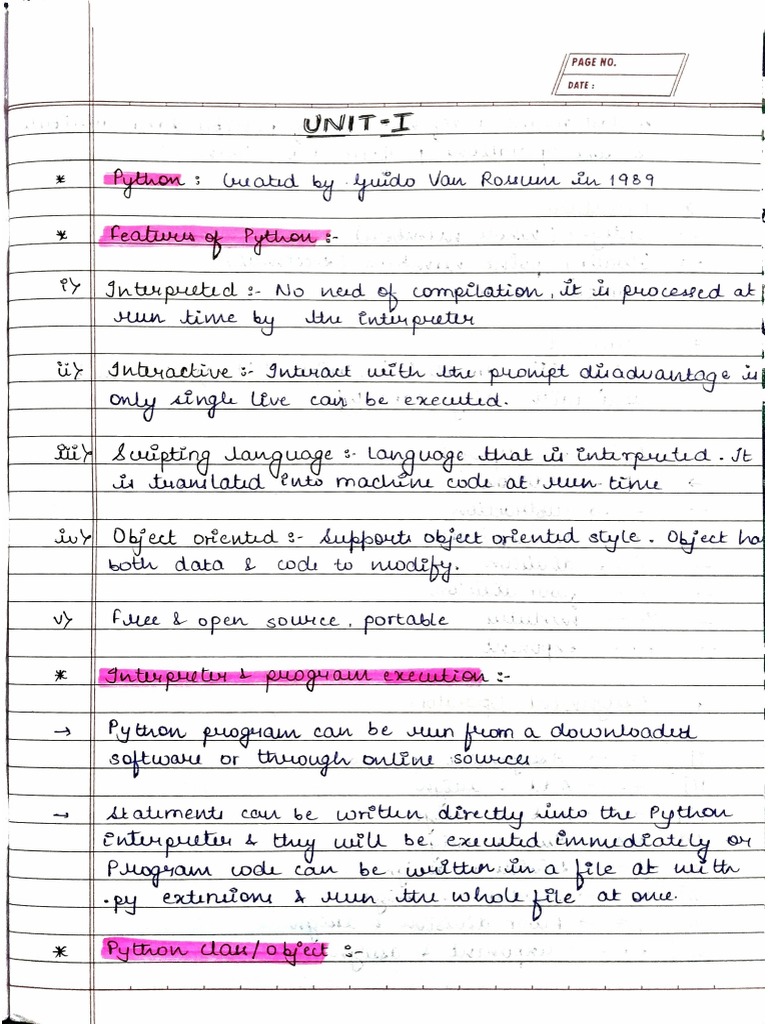 PAGE NO.
DATE :
UNIT-I
* Python : Created by Guido Van Rossum in 1989
* Features of Python :-
i) Interpreted :- No need of compilation, it is processed at
run time by the interpreter
ii) Interactive :- Interact with the prompt disadvantage is
only single live can be executed.
iii) Scripting language :- language that is interpreted. It
is translated into machine code at run time
iv) Object oriented :- Supports object oriented style. Object ha
both data & code to modify.
v) Free & open source, portable
* Interpreter & program execution :-
→ Python program can be run from a downloaded
software or through online sources
→ Statements can be written directly into the Python
interpreter & they will be executed immediately or
Program code can be written in a file at with
.py extensions & run the whole file at once.
* Python class/object :-